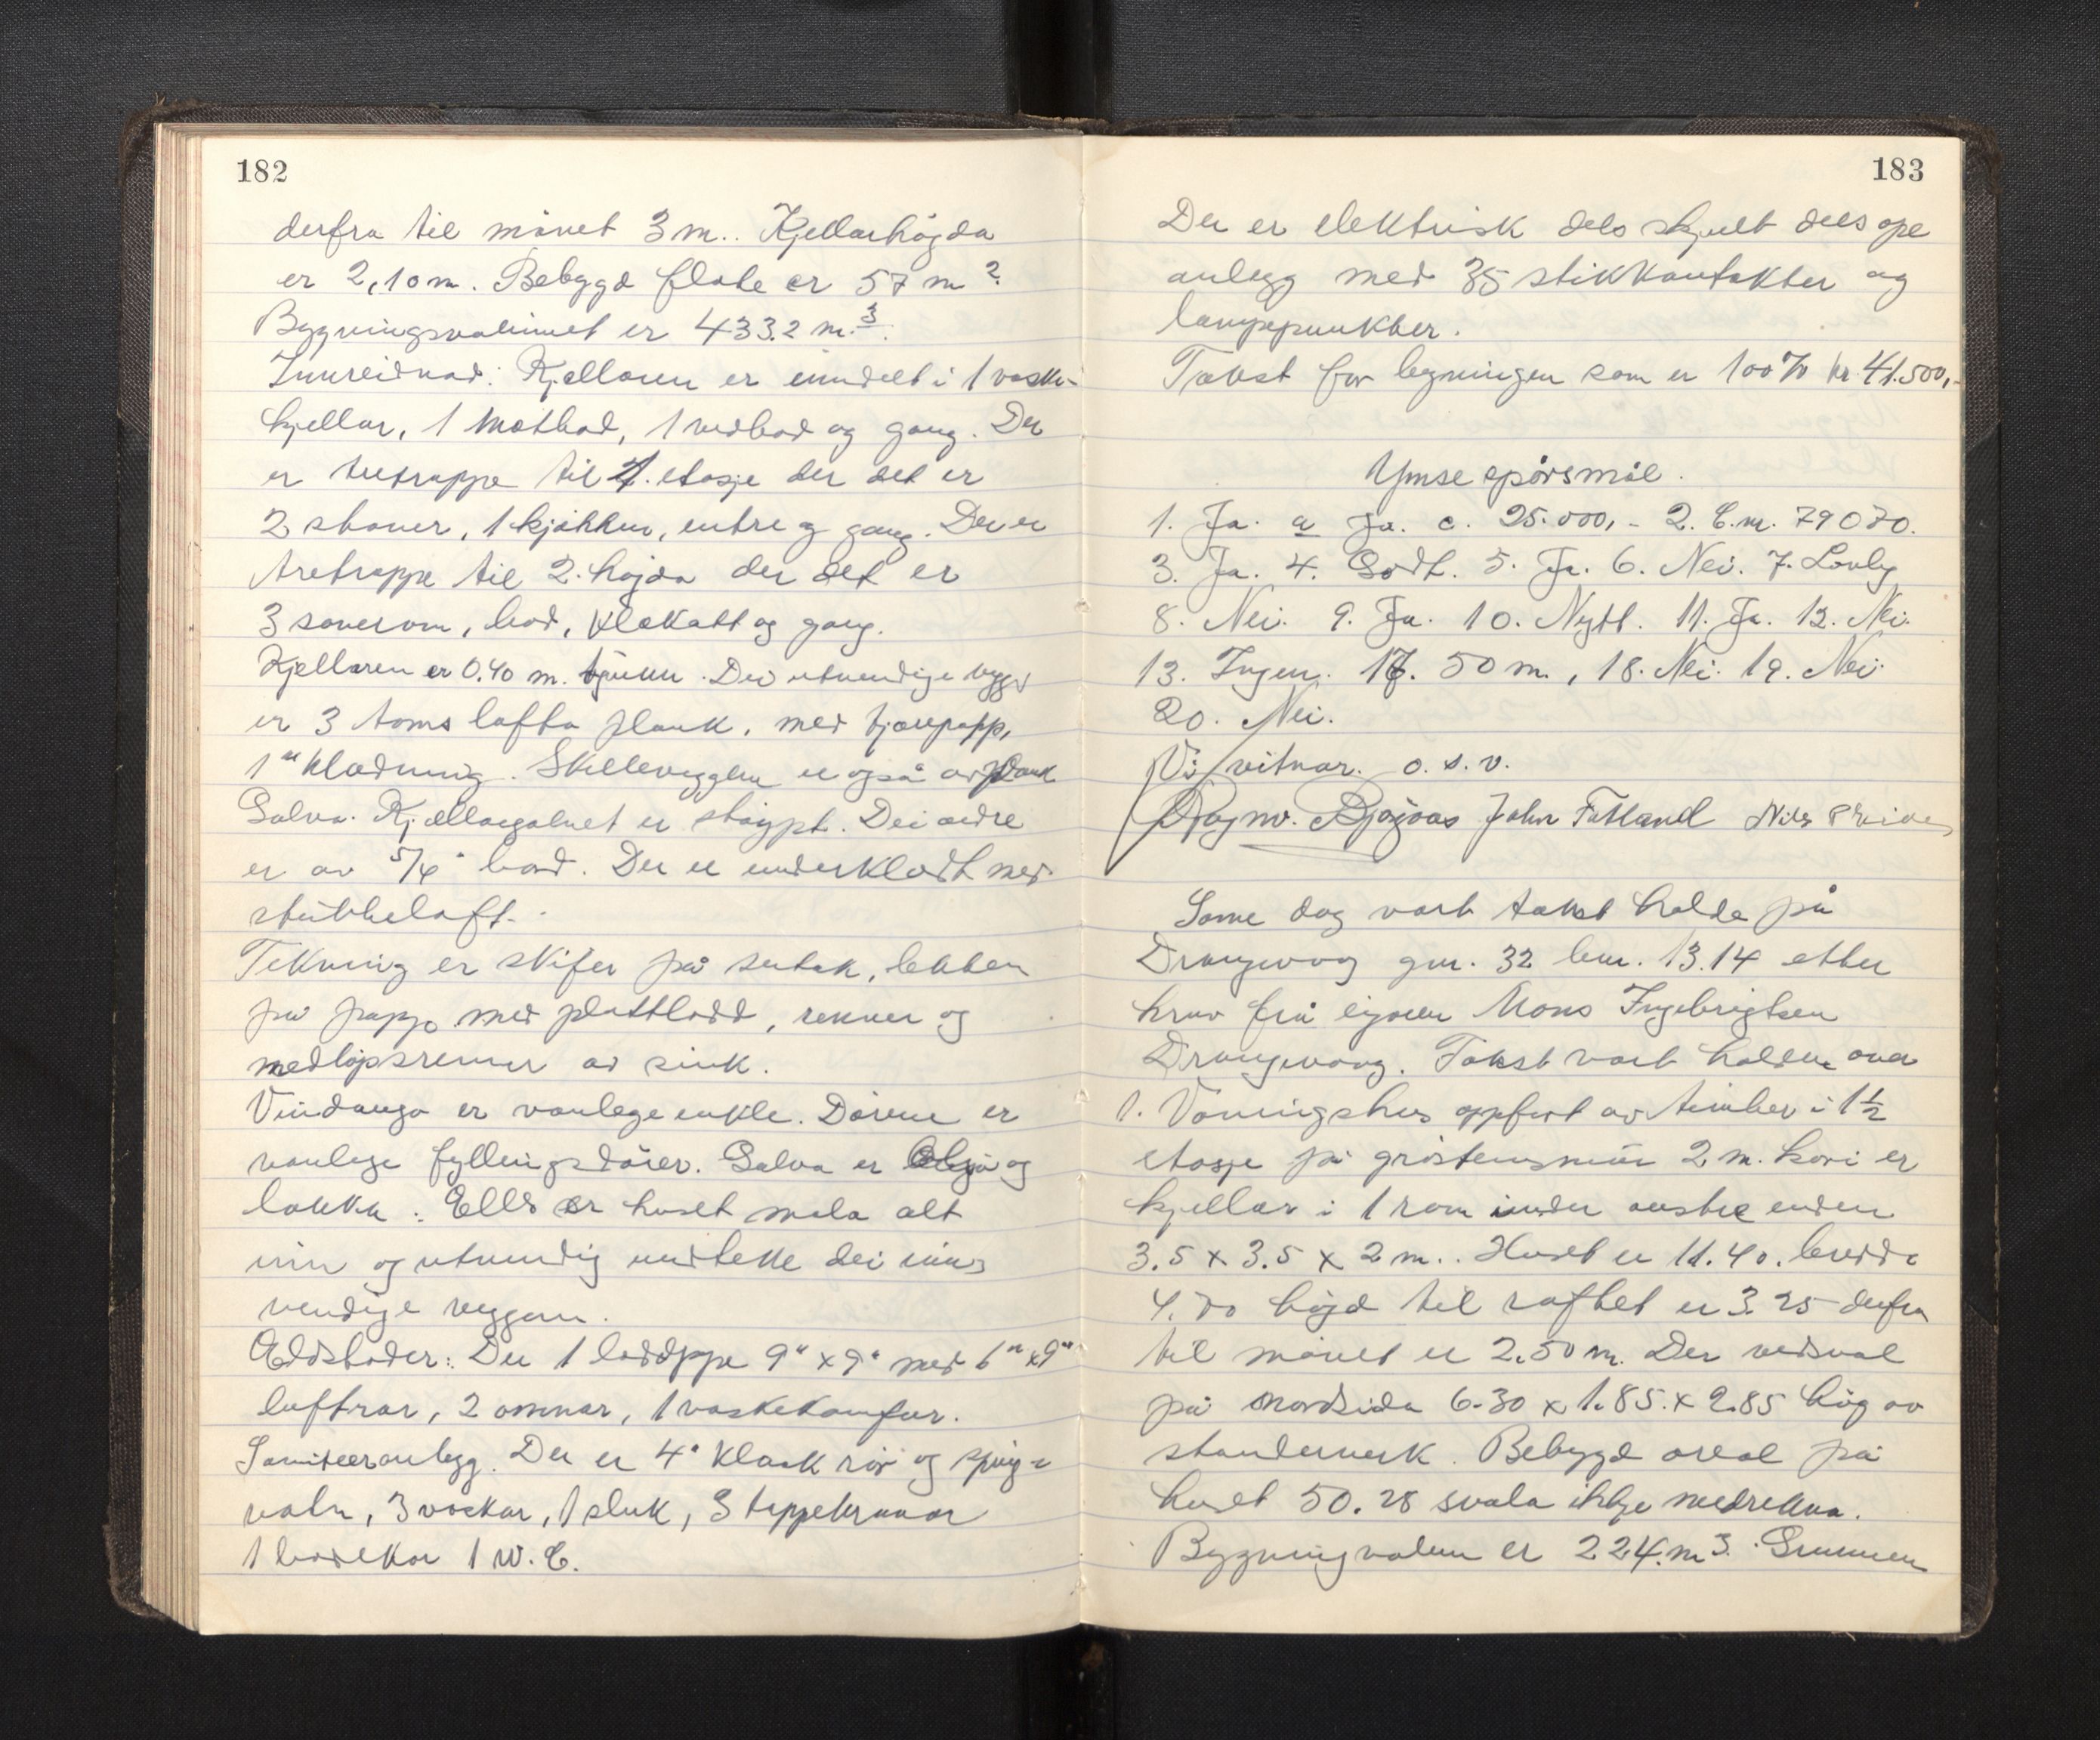 182
derfra til mönet 3 m.. Kjellarhögda
er 2,10 m. Bebygd flate er 57 m²
Bygningsvolumet er 433.2 m.³.
Innreidnad: Kjellaren er inndelt i 1 vaske-
kjellar, 1 matbod, 1 vedbod og gang. Der
er tretrappe til 1. etasje der det er
2 stover, 1 kjökken, entre og gang. Der er
tretrappe til 2. högda der det er
3 soverom, bod, klekott og gang.
Kjellaren er 0.40 m. tjukk. Dei utvendige vegger
er 3 toms lafta plank, med tjærepapp,
1" kledning. Skilleveggen er også av plank
Golva. Kjellargolvet er stöypt. Dei andre
er av 5/4" bord. Der er underkledt med
stubbeloft.
Tekning er skifer på sutak, lekter
på papp med plattlodd, renner og
nedlöpsrenner av sink.
Vindauga er vanlege enkle. Dörene er
vanlege fyllingsdörer. Golva er olja og
lakka. Ells er huset mala alt
inn og utvendig undteke dei inn-
vendige veggene.
Eldstader: Der 1 loddpipe 9" x 9" med 6" x 9"
luftrör, 2 omnar, 1 vaskekomfur.
Saniteranlegg. Der er 4" kloakk rör og spring-
vatn, 3 vaskar, 1 sluk, 3 tappekranar
1 badekar 1 W.C.
183
Der er elektrisk dels skjult dels ope
anlegg med 35 stikkontakter og
lampepunkter.
Takst for bygningen som er 100% kr. 41.500,-
Ymse spörsmål.
1. Ja. a Ja. c. 25.000,- 2. B.m. 79070.
3. Ja. 4. Godt. 5. Ja. 6. Nei. 7. Lovleg
8. Nei. 9. Ja. 10. Nytt. 11. Ja. 12. Nei.
13. Ingen. 17. 50 m., 18. Nei. 19. Nei.
20. Nei.
Vi vitnar. o.s.v.
John Fatland Nils
Same dag vart takst halde på
Drangevåg gnr. 32 bnr. 13.14 etter
krav frå eigaren Mons Ingebrigtsen
Drangevåg. Takst vart halden over
1. Våningshus oppfört av timber i 1½
etasje på gråsteinsmur 2 m. hvori er
kjellar i 1 rom under austre enden
3.5 x 3.5 x 2 m.. Huset er 11.40. bredde
4.70 höjd til raftet er 3.25 derfra
til mönet er 2.50 m. Der vedsval
på nordsida 6.30 x 1.85. x 2.85 höj av
standerverk. Bebygd areal på
huset 50.28 svala ikkje medrekna.
Bygningvolum er 224. m³. Grunnen